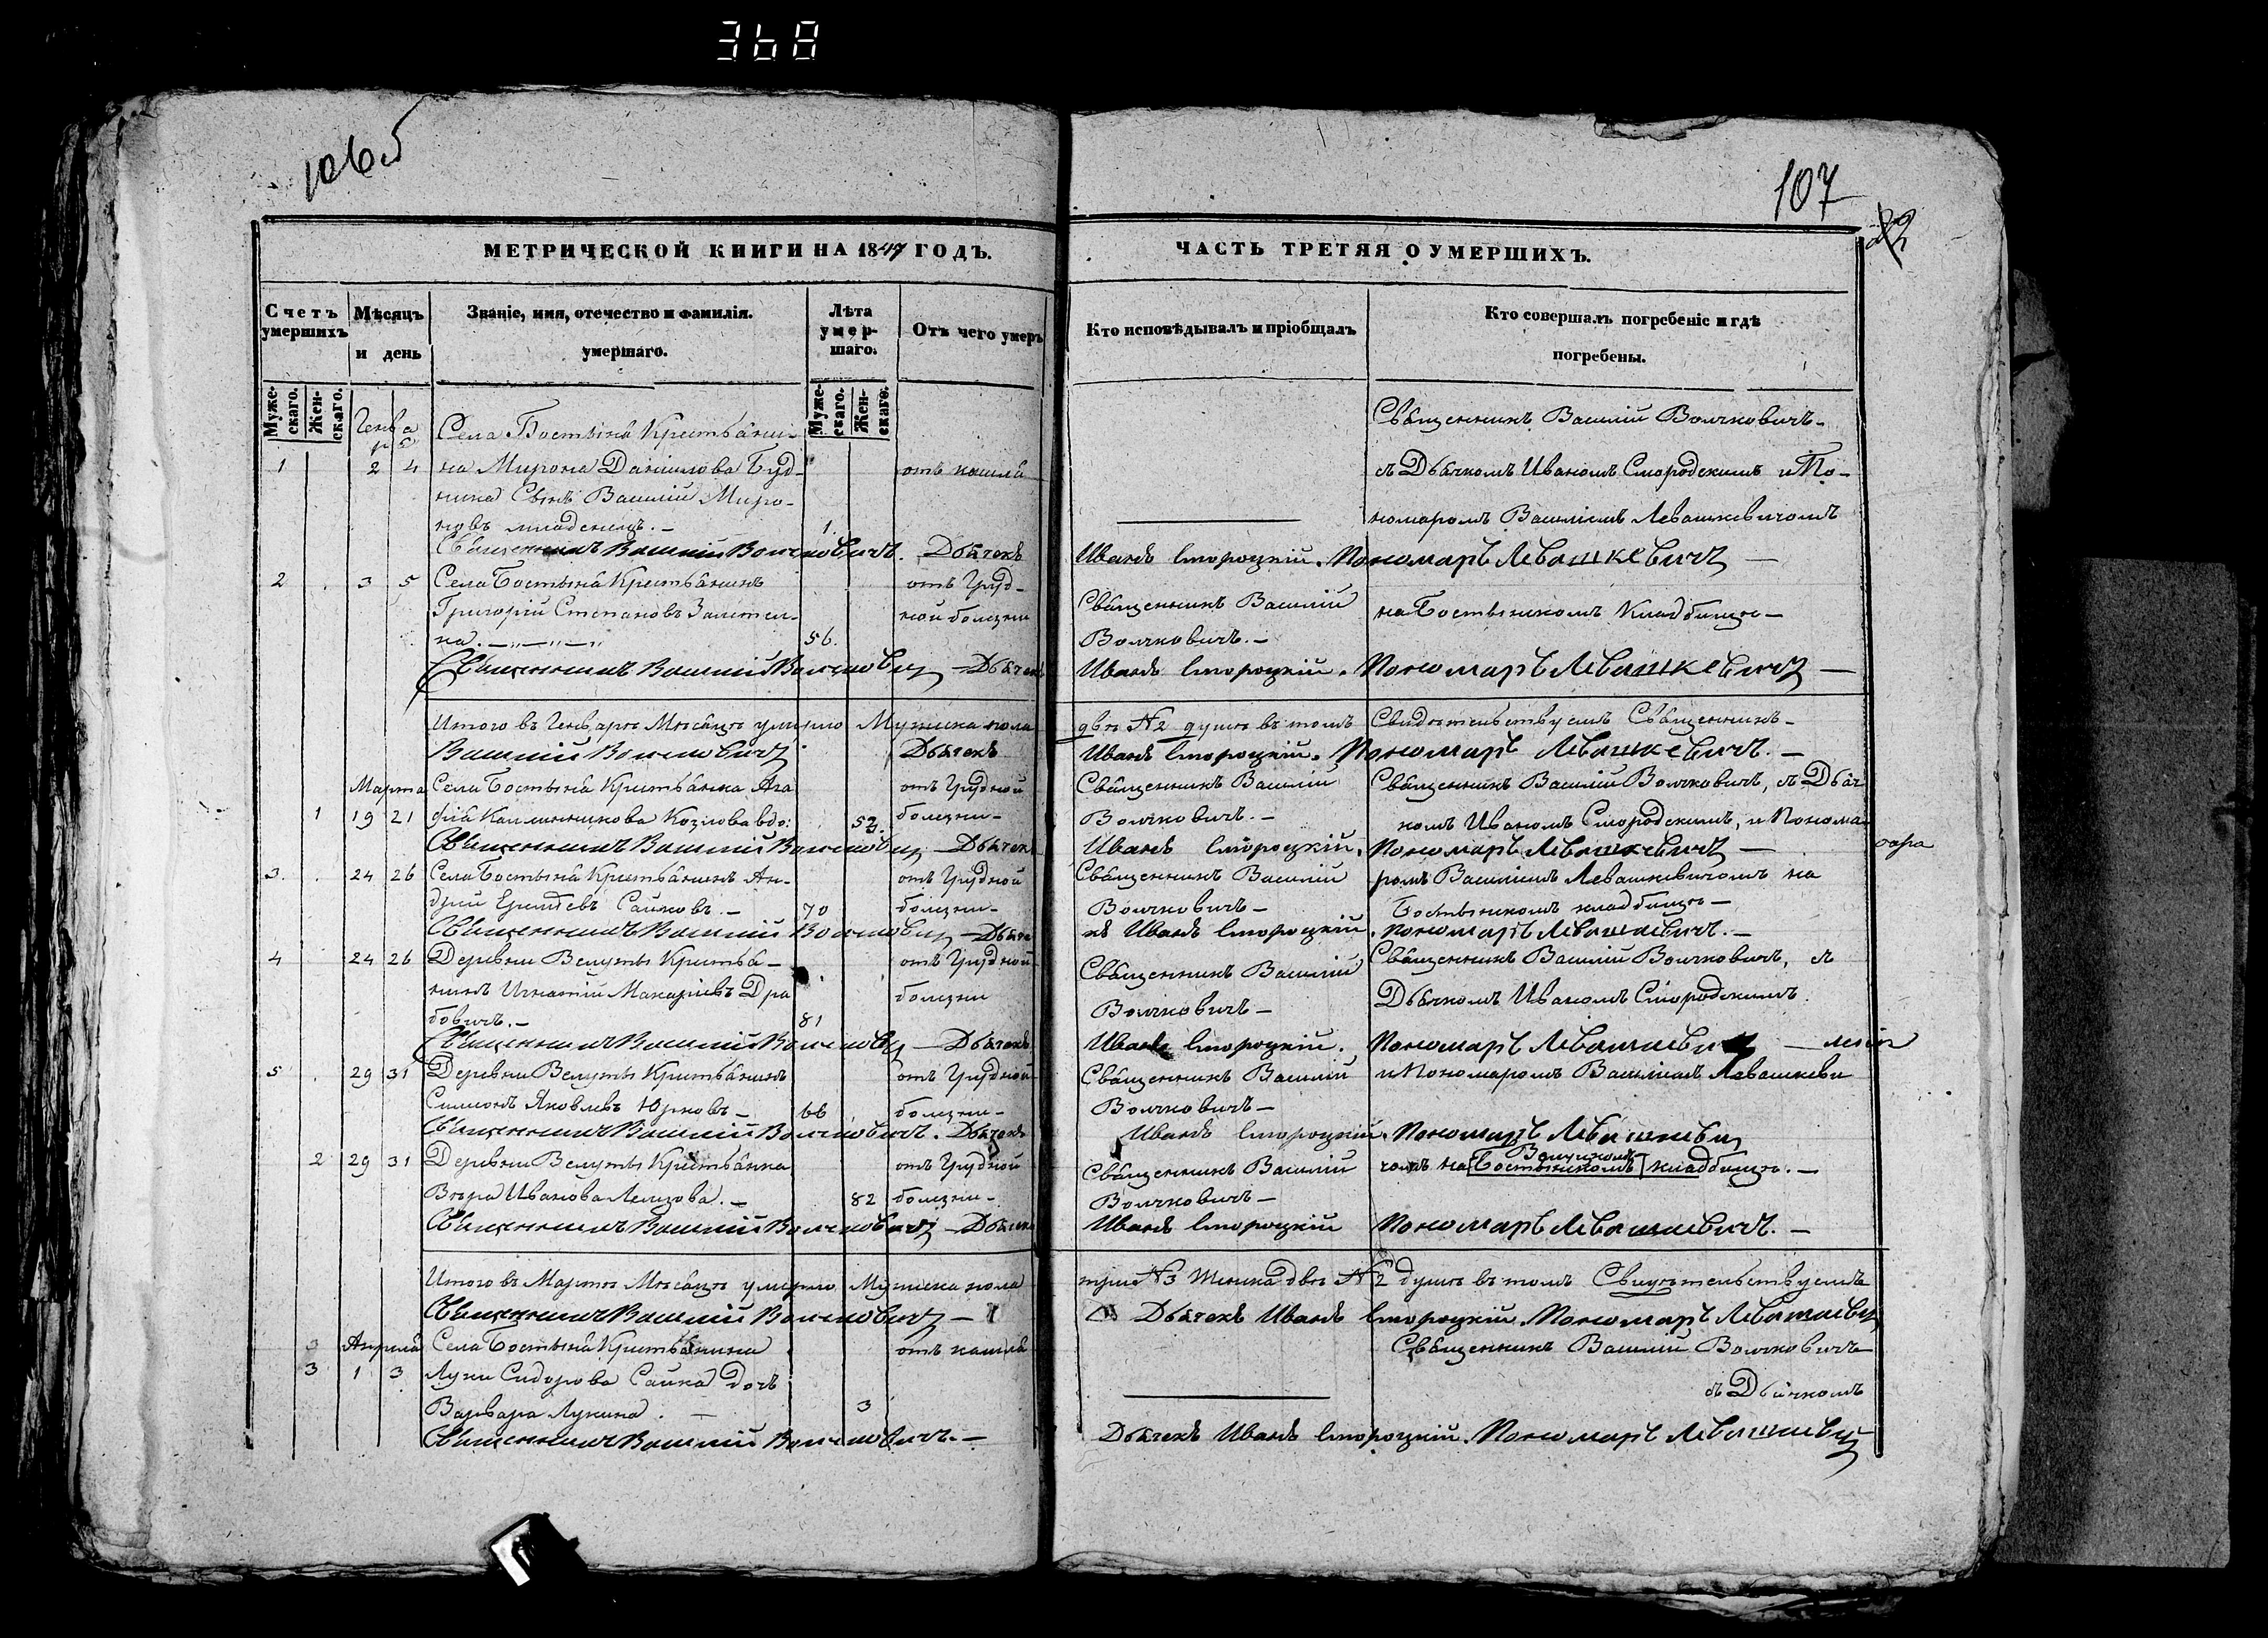 368
106об
107
МЕТРИЧЕСКОЙ КНИГИ НА 1847 ГОДЪ.
ЧАСТЬ ТРЕТЯЯ О УМЕРШИХЪ.
Счетъ умершихъ
Мѣсяцъ и день
Званіе, имя, отечество и фамилія. умершаго.
Лѣта умер-шаго.
Отъ чего умеръ
Кто исповѣдывалъ и пріобщалъ
Кто совершалъ погребеніе и гдѣ погребены.
Муже-скаго. Жен-скаго.
Муже-скаго. Жен-скаго.
Генва
ря
Села Бостыня Крестьяни-
Священникъ Василій Волчковичъ-
1 2 4 на Мирона Данилова Буд- отъ кашля
съ Дьячкомъ Иваномъ Смородскимъ и По-
ника Сынъ Василій Миро-
новъ младенецъ.- 1.
номаромъ Василіемъ Левашкевичомъ
Священникъ Василій Волчковичъ. Дьячекъ
Иванъ Смороцкій. Пономарь Левашкевичъ —
2 3 5 Села Бостыня Крестьянинъ отъ Груд-
Священникъ Василій
на Бостынскомъ Кладбищѣ-
Григорій Степановъ ной болезни
на. 56.
Волчковичъ.-
Священникъ Василій Волчковичъ — Дьячекъ
Иванъ Смороцкій. Пономарь Левашкевичъ —
Итого въ Генварѣ Мѣсяцѣ умерло Мужска пола
двѣ №2 душѣ въ томъ Свидѣтельствуемъ Священникъ-
Василій Волчковичъ Дьячекъ
Иванъ Смороцкій. Пономарь Левашкевичъ. —
Марта Села Бостыня Крестьянка Ага отъ Грудной
Священникъ Василій Священникъ Василій Волчковичъ, съ Дьяч
1 19 21 фія Козлова вдо: болезни-
Волчковичъ.- комъ Иваномъ Смородскимъ, и Понома
Священникъ Василій Волчковичъ — Дьячекъ
Иванъ Смороцкій. Пономарь Левашкевичъ —
3. 24 26 Села Бостыня Крестьянинъ Ан- отъ Грудной
Священникъ Василій ромъ Василіемъ Левашкевичомъ на
дрей Сайковъ.- 70 болезни-
Волчковичъ- Бостынскомъ кладбищѣ-
Священникъ Василій Волчковичъ — Дьяче
къ Иванъ Смороцкій. Пономарь Левашкевичъ.-
4 24 26 Деревни Велуты Крестья- отъ Грудной
Священникъ Василій Священникъ Василій Волчковичъ, съ
нинъ Игнатій Макаріевъ Дра болезни
бовичъ.- 81
Волчковичъ- Дьячкомъ Иваномъ Смородскимъ.
Священникъ Василій Волчковичъ — Дьячекъ
Иванъ Смороцкій. Пономарь Левашкевичъ
5 29 31 Деревни Велуты Крестьянинъ отъ Грудной
Священникъ Василій и Пономаромъ Василіемъ Левашкеви
Симеонъ Яковлевъ Юрковъ- 66 болезни-
Волчковичъ-
Священникъ Василій Волчковичъ. Дьячекъ
Иванъ Смороцкій. Пономарь Левашкевичъ
2 29 31 Деревни Велуты Крестьянка отъ Грудной
Священникъ Василій чомъ на Бостынскомъ кладбищѣ.-
Вѣра Иванова 82 болезни-
Волчковичъ-
Священникъ Василій Волчковичъ — Дьячекъ
Иванъ Смороцкій Пономарь Левашкевичъ.-
Итого въ Мартѣ Мѣсяцѣ умерло Мужска пола
три №3 Женска двѣ №2 душѣ въ томъ Свидѣтельствуемъ
Священникъ Василій Волчковичъ —
Дьячекъ Иванъ Смороцкій. Пономарь Левашкевичъ
Апреля Села Бостыня Крестьянина отъ кашля
Священникъ Василій Волчковичъ
3 1 3 Луки Сидорова Сайка дочь
съ Дьячкомъ
Варвара Лукина. - 3
Священникъ Василій Волчковичъ.-
Дьячекъ Иванъ Смороцкій. Пономарь Левашкевичъ